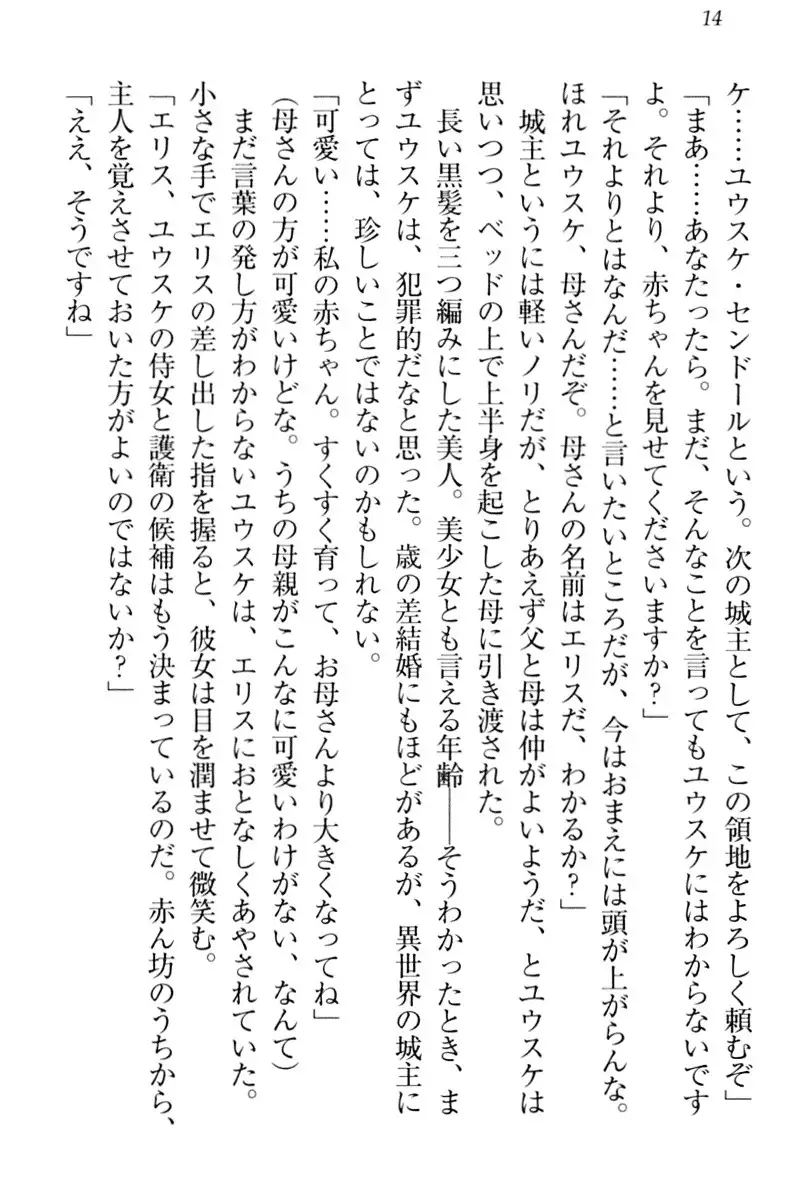 14
ケ……ユウスケ・センドールという。次の城主として、この領地をよろしく頼むぞ」
「まあ……あなたったら。まだ、そんなことを言ってもユウスケにはわからないです
よ。それより、赤ちゃんを見せてくださいますか？」
「それよりとはなんだ……と言いたいところだが、今はおまえには頭が上がらんな。
ほれユウスケ、母さんだぞ。母さんの名前はエリスだ、わかるか？」
城主というには軽いノリだが、とりあえず父と母は仲がよいようだ、とユウスケは
思いつつ、ベッドの上で上半身を起こした母に引き渡された。
長い黒髪を三つ編みにした美人。美少女とも言える年齢――そうわかったとき、ま
ずユウスケは、犯罪的だなと思った。歳の差結婚にもほどがあるが、異世界の城主に
とっては、珍しいことではないのかもしれない。
「可愛い……私の赤ちゃん。すくすく育って、お母さんより大きくなってね」
（母さんの方が可愛いけどな。うちの母親がこんなに可愛いわけがない、なんて）
まだ言葉の発し方がわからないユウスケは、エリスにおとなしくあやされていた。
小さな手でエリスの差し出した指を握ると、彼女は目を潤ませて微笑む。
「エリス、ユウスケの侍女と護衛の候補はもう決まっているのだ。赤ん坊のうちから、
主人を覚えさせておいた方がよいのではないか？」
「ええ、そうですね」